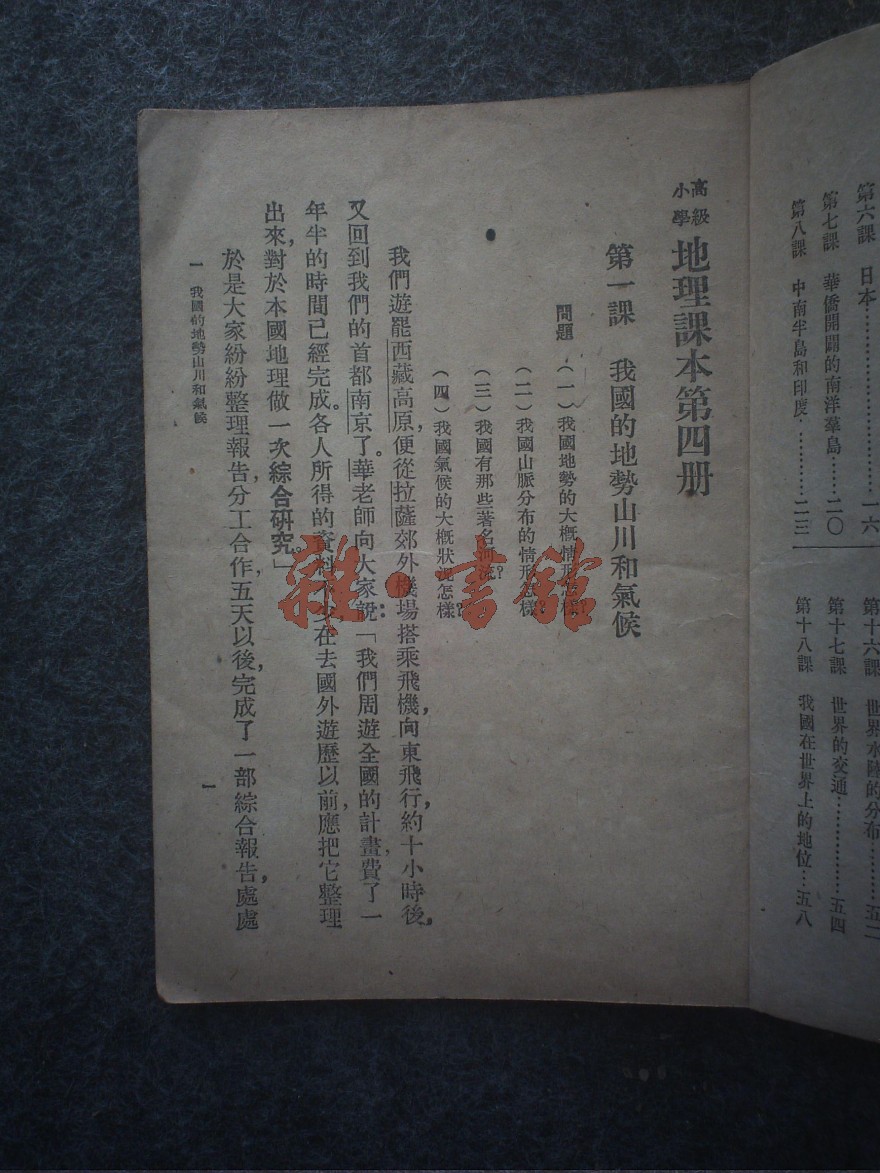 第六課　日本……………一六
第七課　華僑開闢的南洋羣島……二〇
第八課　中南半島和印度…………二三
第十六課　世界水陸的分布………五二
第十七課　世界的交通……………五四
第十八課　我國在世界上的地位…五八
高級小學 地理課本第四册
第一課　我國的地勢山川和氣候
問題　（一）我國地勢的大槪情形怎樣？
（二）我國山脈分布的情形怎樣？
（三）我國有那些著名河流？
（四）我國氣候的大槪狀況怎樣？
我們遊罷西藏高原，便從拉薩郊外機場搭乘飛機向東飛行，約十小時後，
又回到我們的首都南京了。華老師向大家說：「我們周遊全國的計畫，費了一
年半的時間已經完成。各人所得的資料在去國外遊歷以前，應把它整理
出來，對於本國地理做一次綜合研究。」
於是大家紛紛整理報告，分工合作，五天以後，完成了一部綜合報告，處處
一　我國的地勢山川和氣候
一
雜·書館